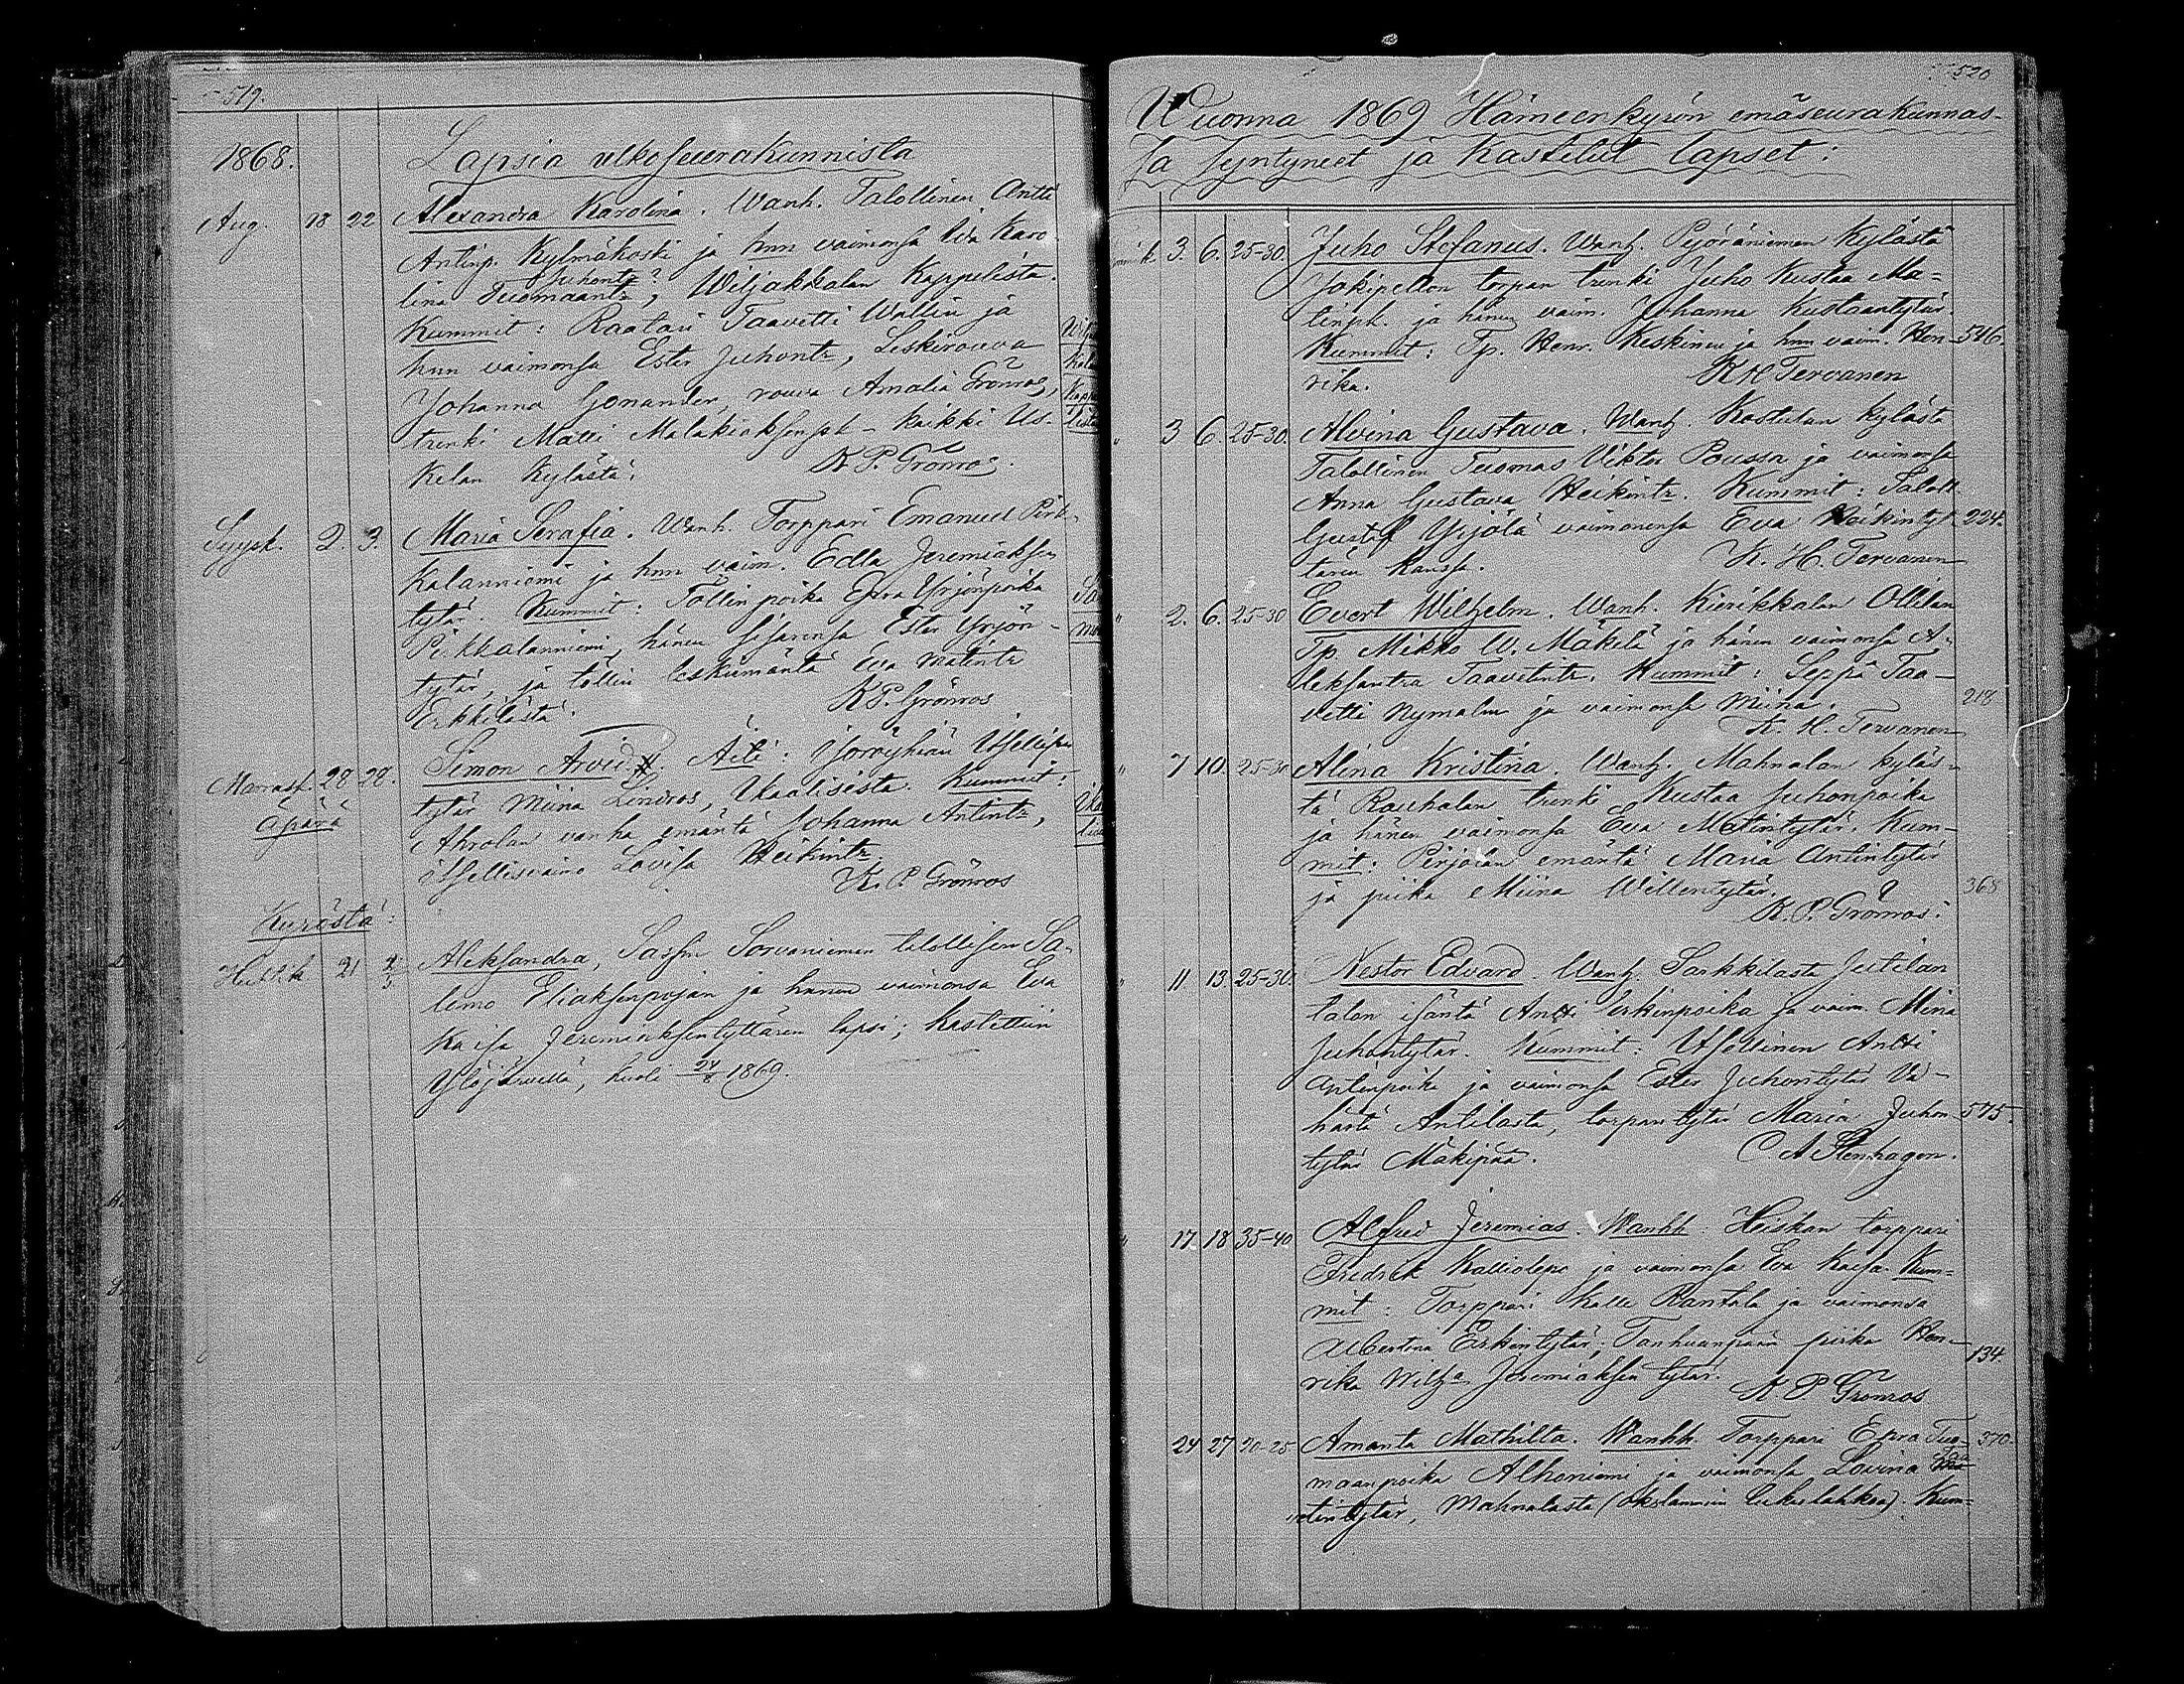 519.
1868.
Lapsia ulkoseurakunnista
Aug. 18 22 Alexandra Karolina. Wanh. Talollinen Antti
Antinp. Kylmäkoski ja hnn vaimonsa Karo
Juhontr?
lina Tuomaantr, Wiljakkalan Kappelista.
Kummit: Raatari Taavetti Wallin ja
hnn vaimonsa Ester Juhontr, Leskirouva
Johanna Gonander, rouva Amalia Grönros,
trenki Matti Malakiaksenpk - kaikki Us-
kelan kylästä.
K P. Grönros.
Syysk. 2. 3. Maria Serafia. Wanh. Torppari Emanuel Pirk-
kalanniemi ja hnn vaim. Edla Jeremiaksen
tytär. Kummit: Töllinpoika Epra Yrjönpoika
Pirkkalanniemi, hänen sisarensa Ester Yrjön-
tytär, ja töllin leskiemäntä Eva Matintr
Erkkilästä.
K P. Grönros
Marrask. 28 28. Simon Arvid. Äiti: Itsellisen
Äpärä
tytär Miina Lindros, Ikaalisista. Kummit:
Ahrolan vanha emäntä Johanna Antintr,
itsellisvaimo Lovisa Heikintr
K. P. Grönros
Kyröstä:
Huhtik 21 Aleksandra, Sassin Sorvaniemen talollisen Sa-
lemo Eliaksenpojan ja hänen vaimonsa Eva
Kaisa Jeremiaksentyttären lapsi; kastettiin
Ylöjärvellä, kuoli 24/8 1869.
520
Wuonna 1869 Hämeenkyrön emäseurakunnas-
sa syntyneet ja kastetut lapset:
3. 6. 25-30. Juho Stefanus. Wanh. Pyöräniemen kylästä
Jokipellon torpan trenki Juho Kustaa Ma-
tinpk. ja hänen vaim. Johanna Kustaantytär.
Kummit: Tp. Henr. Keskinen ja hnn vaim. Hen- 546.
rika.
K H Tervanen
" 3 6. 25-30. Alvina Gustava. Wanh. Kostulan kylästä
Talollinen Tuomas Viktor Poussa ja vaimonsa
Anna Gustava Heikintr. Kummit: Taloll.
Gustaf Yrjölä vaimonensa Eva Heikintyt- 224.
tären kanssa.
K. H. Tervanen
" 2. 6. 25-30 Evert Wilhelm. Wanh. Kierikkalan Ollilan
Tp. Mikko W. Mäkelä ja hänen vaimonsa A-
leksantra Taavetintr. Kummit: Seppä Taa-
vetti Nymalm ja vaimonsa Miina. 218
K. H. Tervanen
" 7 10. 25-30 Alina Kristina. Wanh. Mahnalan kyläs-
tä Rauhalan trenki Kustaa Juhonpoika
ja hänen vaimonsa Eva Matintytär. Kum-
mit: Pirjolan emäntä Maria Antintytär
ja piika Miina Willentytär. 368
K. P. Grönros.
" 11 13. 25-30. Nestor Edvard. Wanh. Sarkkilasta Jutilan
talon isäntä Antti Erkinpoika ja vaim. Miina
Juhontytär. Kummit: Itsellinen Antti
Antinpoika ja vaimonsa Ester Juhontytär Vä-
härtä Antilasta, torpantytär Maria Juhon- 575.
tytär Mäkipää.
C A Stenhagen.
" 17. 18 35-40 Alfred Jeremias. Wanhh. Heiskan torppari
Fredrik Kalliolepo ja vaimonsa Eva Kaisa. Kum-
mit: Torppari Kalle Rantala ja vaimonsa
Albertina Erkintytär; Tanhuanpään piika Hen-
rika Wilh:a Jeremiaksen tytär. 134.
K P Grönros
24 27 20-25 Amanta Mathilta. Wanhh. Torppari Epra Tuo- 370.
maanpoika Alhoniemi ja vaimonsa Lovina
tintytär, Mahnalasta (lukulahkoa). Kum-